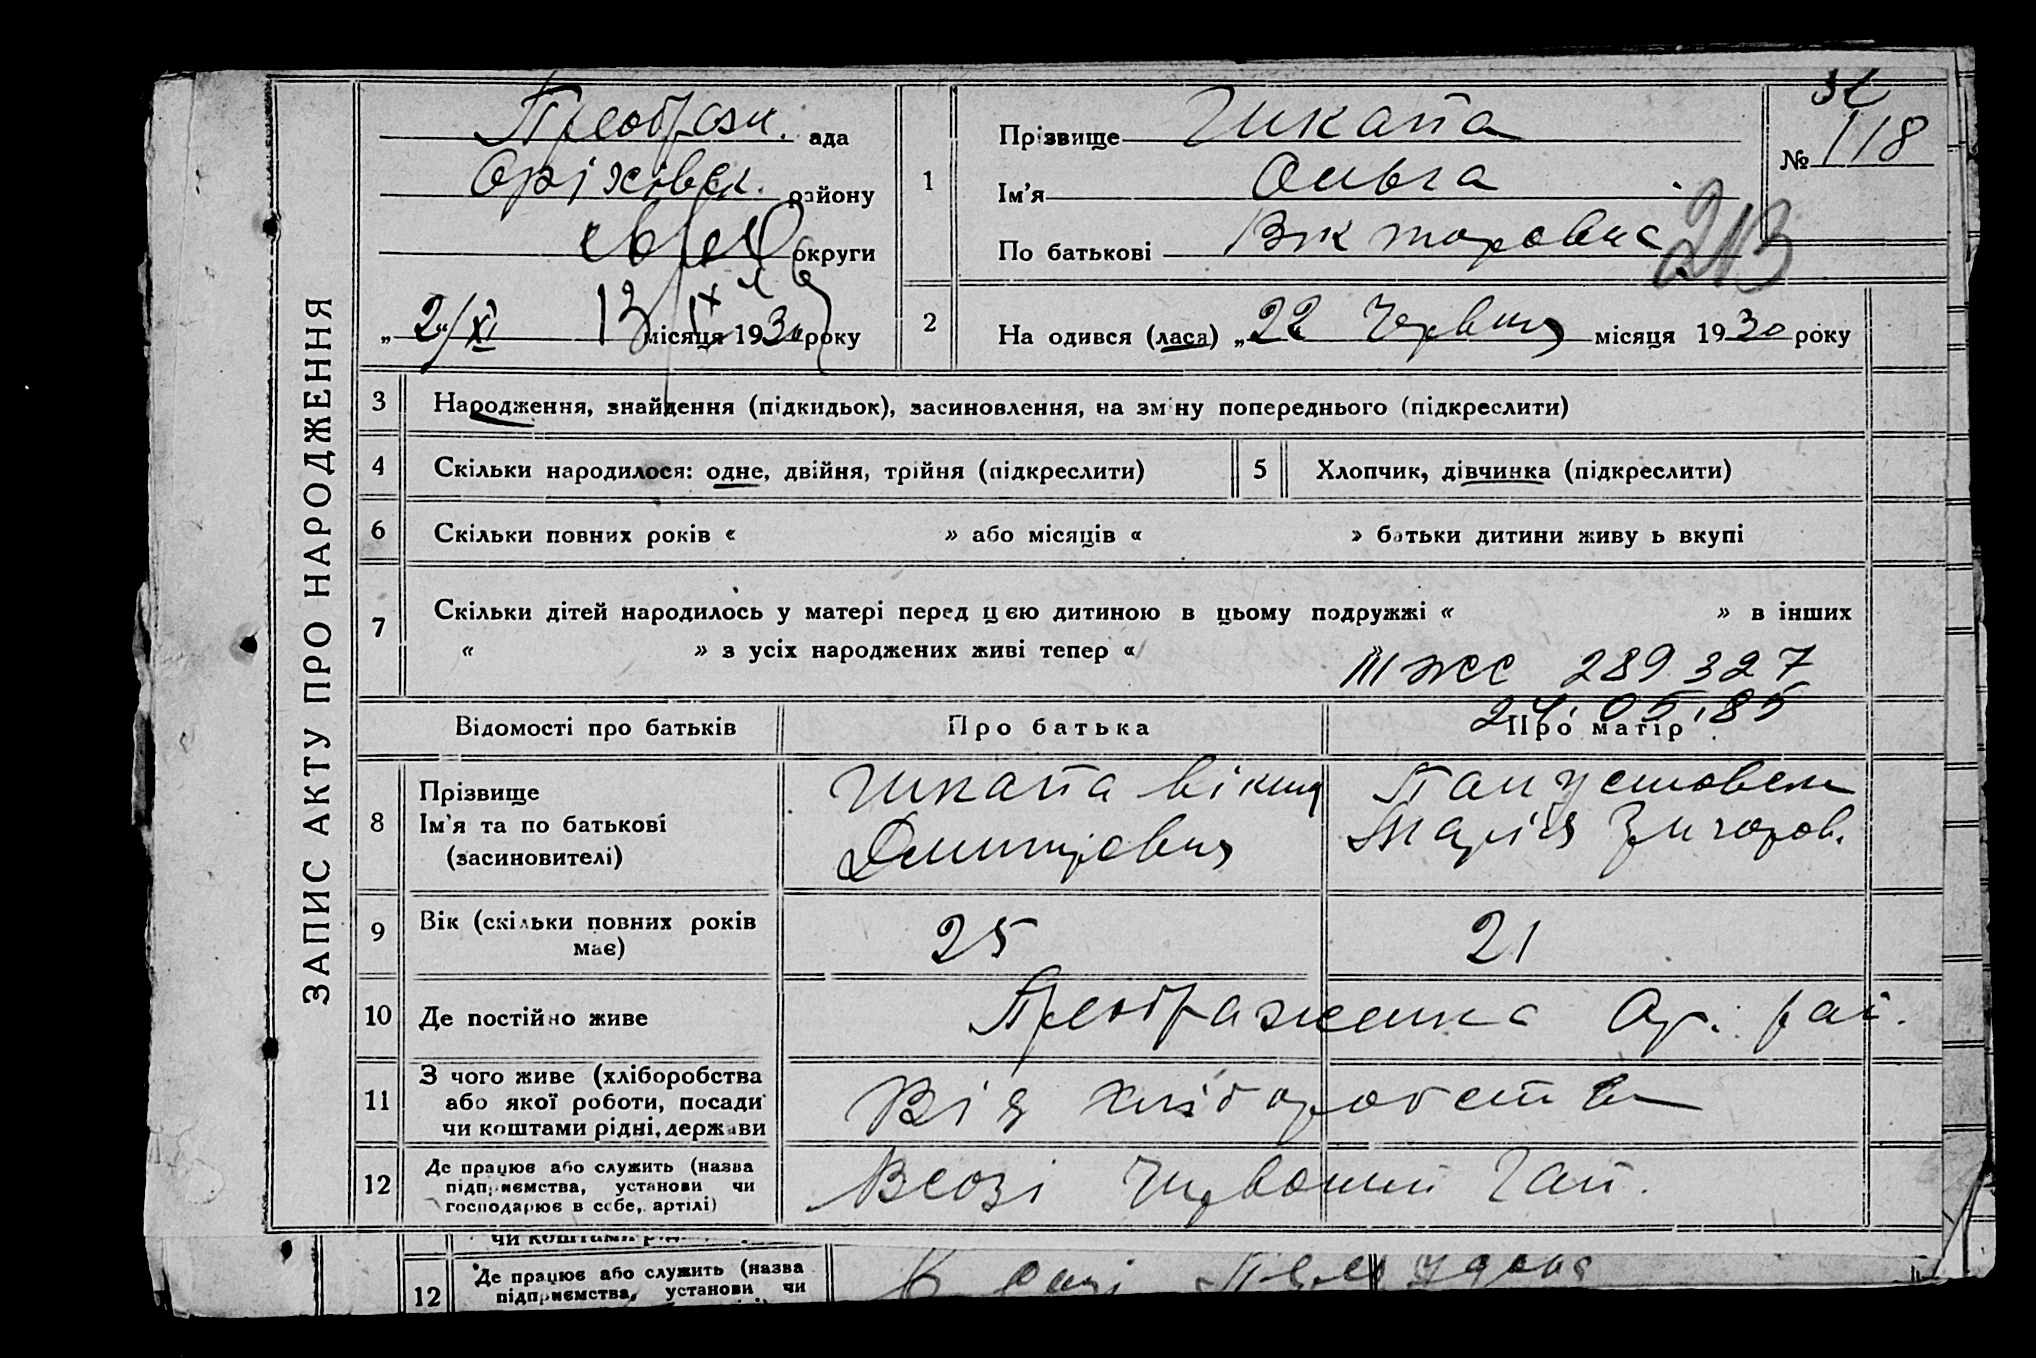 ЗАПИС АКТУ ПРО НАРОДЖЕННЯ
Преображ. ада
Оріхівськ. району
округи
„ 2/XI місяця 1930 року
1
Прізвище Шкапа
Ім'я Ольга
По батькові Вікторовна
№ 118
213
2
На одився (лася) „22 Червня місяця 1930 року
3 Народження, знайдення (підкидьок), засиновлення, на зміну попереднього (підкреслити)
4 Скільки народилося: одне, двійня, трійня (підкреслити)
5 Хлопчик, дівчинка (підкреслити)
6 Скільки повних років « » або місяців « » батьки дитини живу ь вкупі
7 Скільки дітей народилось у матері перед цією дитиною в цьому подружжі « » в інших
« » з усіх народжених живі тепер «
III ЖС 289327
24.05.85
Відомості про батьків Про батька Про матір
8 Прізвище
Ім'я та по батькові
(засиновителі)
Шкапа Віктор
Дмитрович
Марія Григоров.
9 Вік (скільки повних років
має)
25 21
10 Де постійно живе
Преображенка Ор. рай.
11 З чого живе (хліборобства
або якої роботи, посади
чи коштами рідні, держави
Від хліборобства
12 Де працює або служить (назва
підприємства, установи чи
господарює в себе, артілі)
В созі Червоний Гай.
чи коштами
12 Де працює або служить (назва
підприємства, установи чи